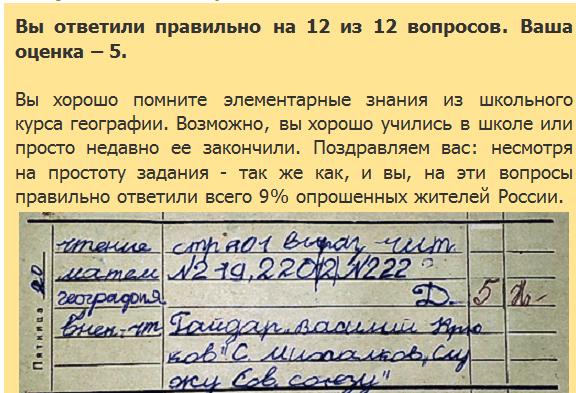 Вы ответили правильно на 12 из 12 вопросов. Ваша
оценка – 5.
Вы хорошо помните элементарные знания из школьного
курса географии. Возможно, вы хорошо учились в школе или
просто недавно ее закончили. Поздравляем вас: несмотря
на простоту задания - так же как, и вы, на эти вопросы
правильно ответили всего 9% опрошенных жителей России.
Пятница 20
чтение стр 101 выраз. чит.
матем №219, 220(2) №222
география Д. 5
внек. чт Гайдар. Василий Крю
ков" С. Михалков, Слу
жу Сов. союзу"